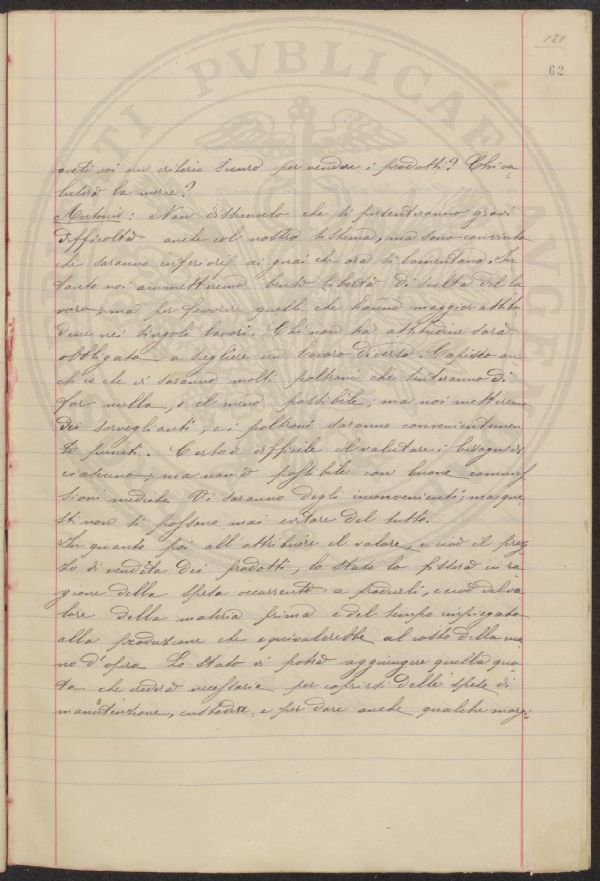 121
62
avete voi un criterio sicuro per vendere i prodotti? Chi va-
luterà la merce?
Antonio: Non dissimulo che si presenteranno gravi
difficoltà anche col nostro sistema, ma sono convinto
che saranno inferiori ai guai che ora si lamentano. In
tanto noi ammetteremo tanta libertà di scelta del la
voro, ma per favorire quelli che hanno maggior attitu
dine nei singoli lavori. Chi non ha attitudine sarà
obbligato a scegliere un lavoro diverso. Capisco an
ch'io che vi saranno molti poltroni che tenteranno di
far nulla, o il meno possibile; ma noi metteremo
dei sorveglianti, e i poltroni saranno convenientemen
te puniti. Certo è difficile il valutare i bisogni di
ciascuno; ma non è possibile con buone commis
sioni mediche. Vi saranno degli inconvenienti; ma que
sti non si possono mai evitare del tutto.
In quanto poi all'attribuire il valore, e cioè il prez
zo di vendita dei prodotti, lo Stato lo fisserà in ra
gione della spesa occorrente a produrli, e cioè del va
lore della materia prima e del tempo impiegato
alla produzione che equivalerebbe al costo della ma
no d'opera. Lo Stato vi potrà aggiungere quella quo
ta che crederà necessaria per coprirsi delle spese di
manutenzione, custodia, e per dare anche qualche margi-
PVBLICAE